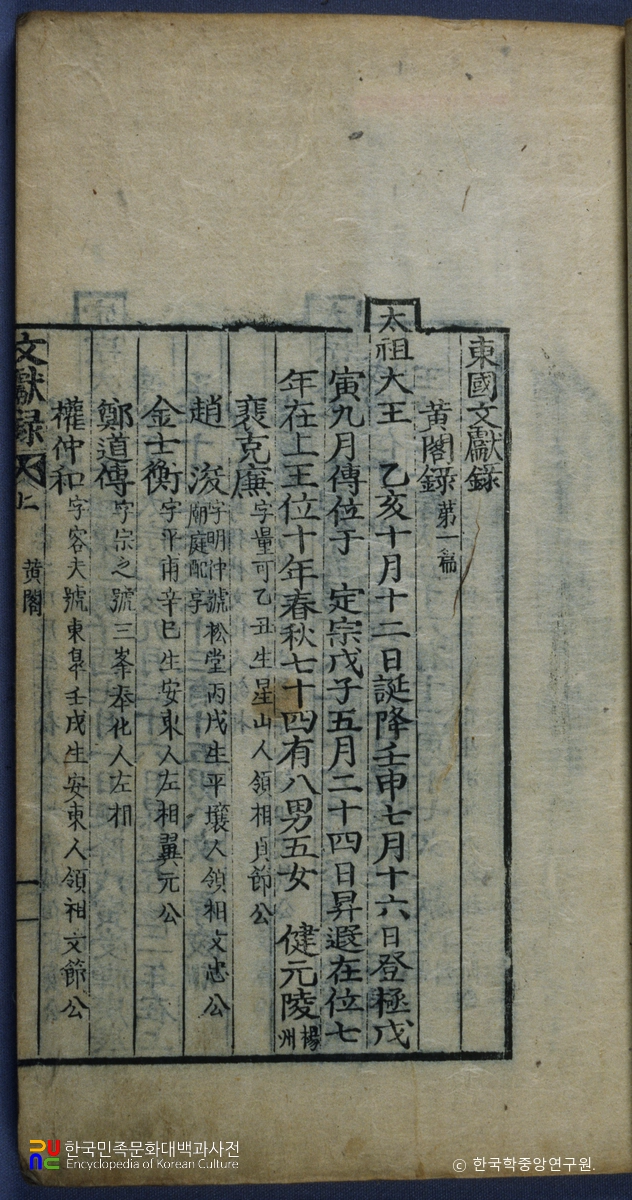 東國文獻錄
黄閣錄第一篇
太祖大王 乙亥十月十二日誕降壬申七月十六日登極戊
寅九月傳位于 定宗戊子五月二十四日昇遐在位七
年在上王位十年春秋七十四有八男五女 健元陵楊州
裵克廉字量可乙丑生星山人領相貞節公
趙浚字明仲號松堂丙戌生平壤人領相文忠公
廟庭配享
金士衡字平甫辛巳生安東人左相翼元公
鄭道傳字宗之號三峯奉化人左相
權仲和字容夫號東皐壬戌生安東人領相文節公
文獻錄 上 黄閣 一
한국민족문화대백과사전
Encyclopedia of Korean Culture
© 한국학중앙연구원.